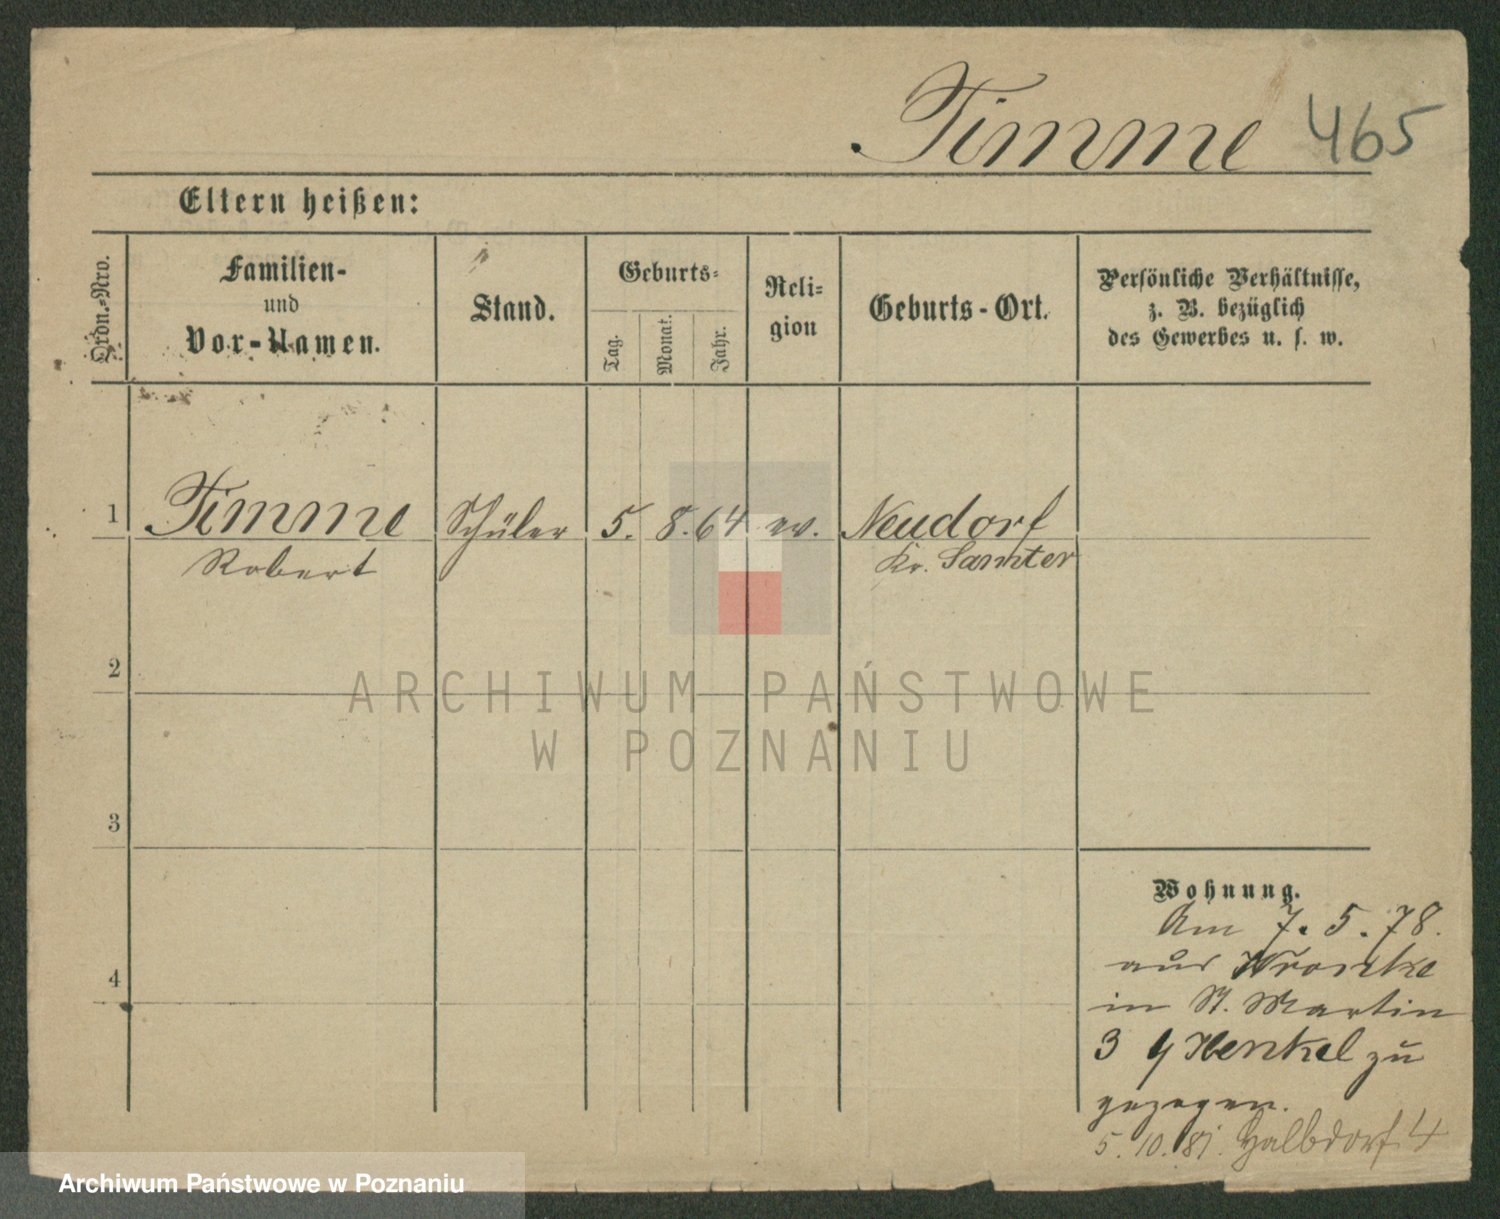 Timme 465
Eltern heißen:
Ordn.-Nro.
Familien-
und
Vor-Namen.
Stand.
Geburts-
Tag.
Monat.
Jahr.
Reli-
gion
Geburts-Ort.
Persönliche Verhältnisse,
z. B. bezüglich
des Gewerbes u. s. w.
1 Timme Schüler 5. 8. 64 ev. Neudorf
Robert Kr. Samter
2
3
4
Wohnung.
Am 7. 5. 78.
aus Wronke
in St. Martin
3 Henkel zu
gezogen.
5. 10. 81. Halbdorf 4
ARCHIWUM PAŃSTWOWE
W POZNANIU
Archiwum Państwowe w Poznaniu